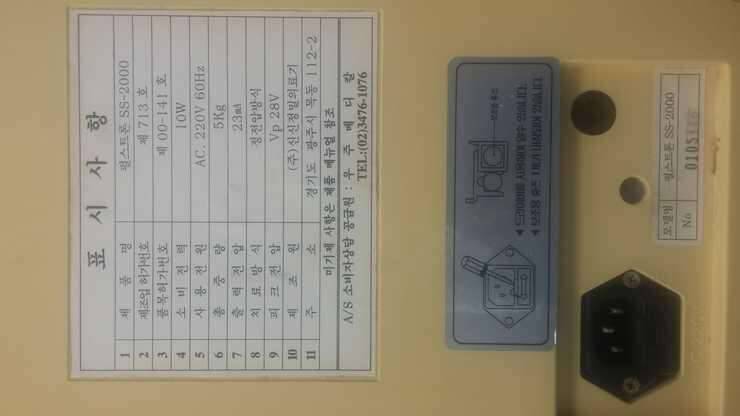 표 시 사 항
1 제 품 명 펄스트론 SS-2000
2 제조업 허가번호 제 713 호
3 품목허가번호 제 00-141 호
4 소 비 전 력 10W
5 사 용 전 원 AC. 220V 60Hz
6 총 중 량 5Kg
7 출 력 전 압 23㎃
8 치 료 방 식 정전압방식
9 피 크 전 압 Vp 28V
10 제 조 원 (주)신신정밀의료기
11 주 소 경기도 광주시 목동 112-2
미기재 사항은 제품 메뉴얼 참조
A/S 소비자상담 공급원 : 우 주 메 디 칼
TEL:(02)3476-1076
◀ 드라이버를 사용하여 열수 있습니다.
모델명 펄스트론 SS-2000
No 0105